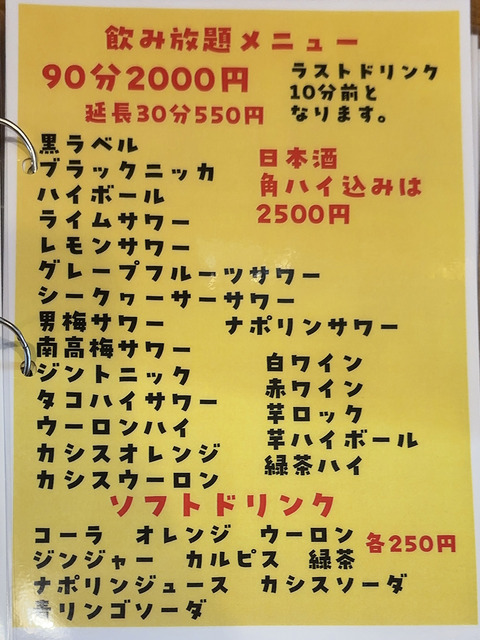 飲み放題メニュー
90分2000円
延長30分550円
ラストドリンク
10分前と
なります。
黒ラベル
ブラックニッカ
ハイボール
ライムサワー
レモンサワー
グレープフルーツサワー
シークヮーサーサワー
男梅サワー
南高梅サワー
ジントニック
タコハイサワー
ウーロンハイ
カシスオレンジ
カシスウーロン
日本酒
角ハイ込みは
2500円
ナポリンサワー
白ワイン
赤ワイン
芋ロック
芋ハイボール
緑茶ハイ
ソフトドリンク
コーラ オレンジ ウーロン
ジンジャー カルピス 緑茶
各250円
ナポリンジュース カシスソーダ
青リンゴソーダ